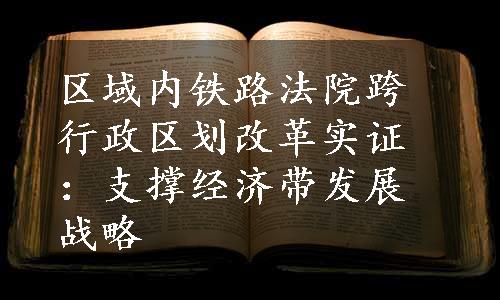 区域内铁路法院跨
行政区划改革实证
：支撑经济带发展
战略